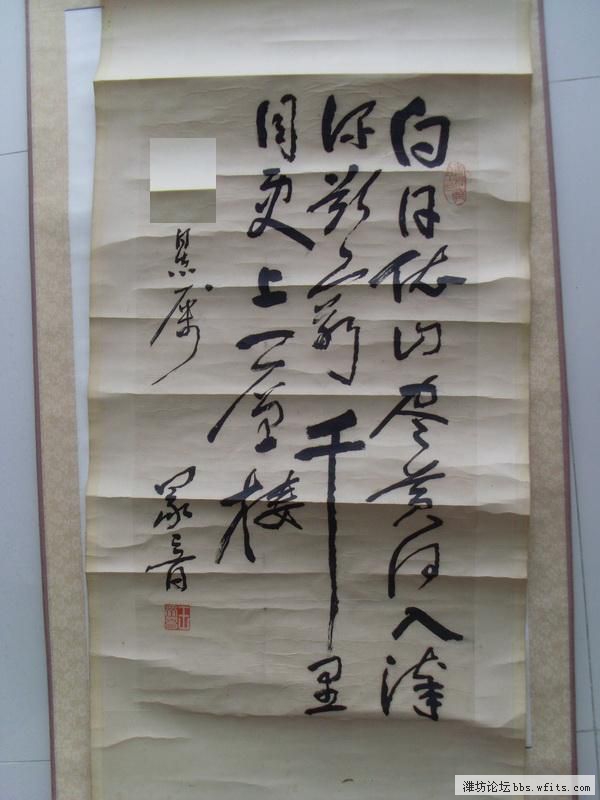 白日依山尽黄河入海
流欲穷千里
目更上一层楼
潍坊论坛bbs.wfits.com